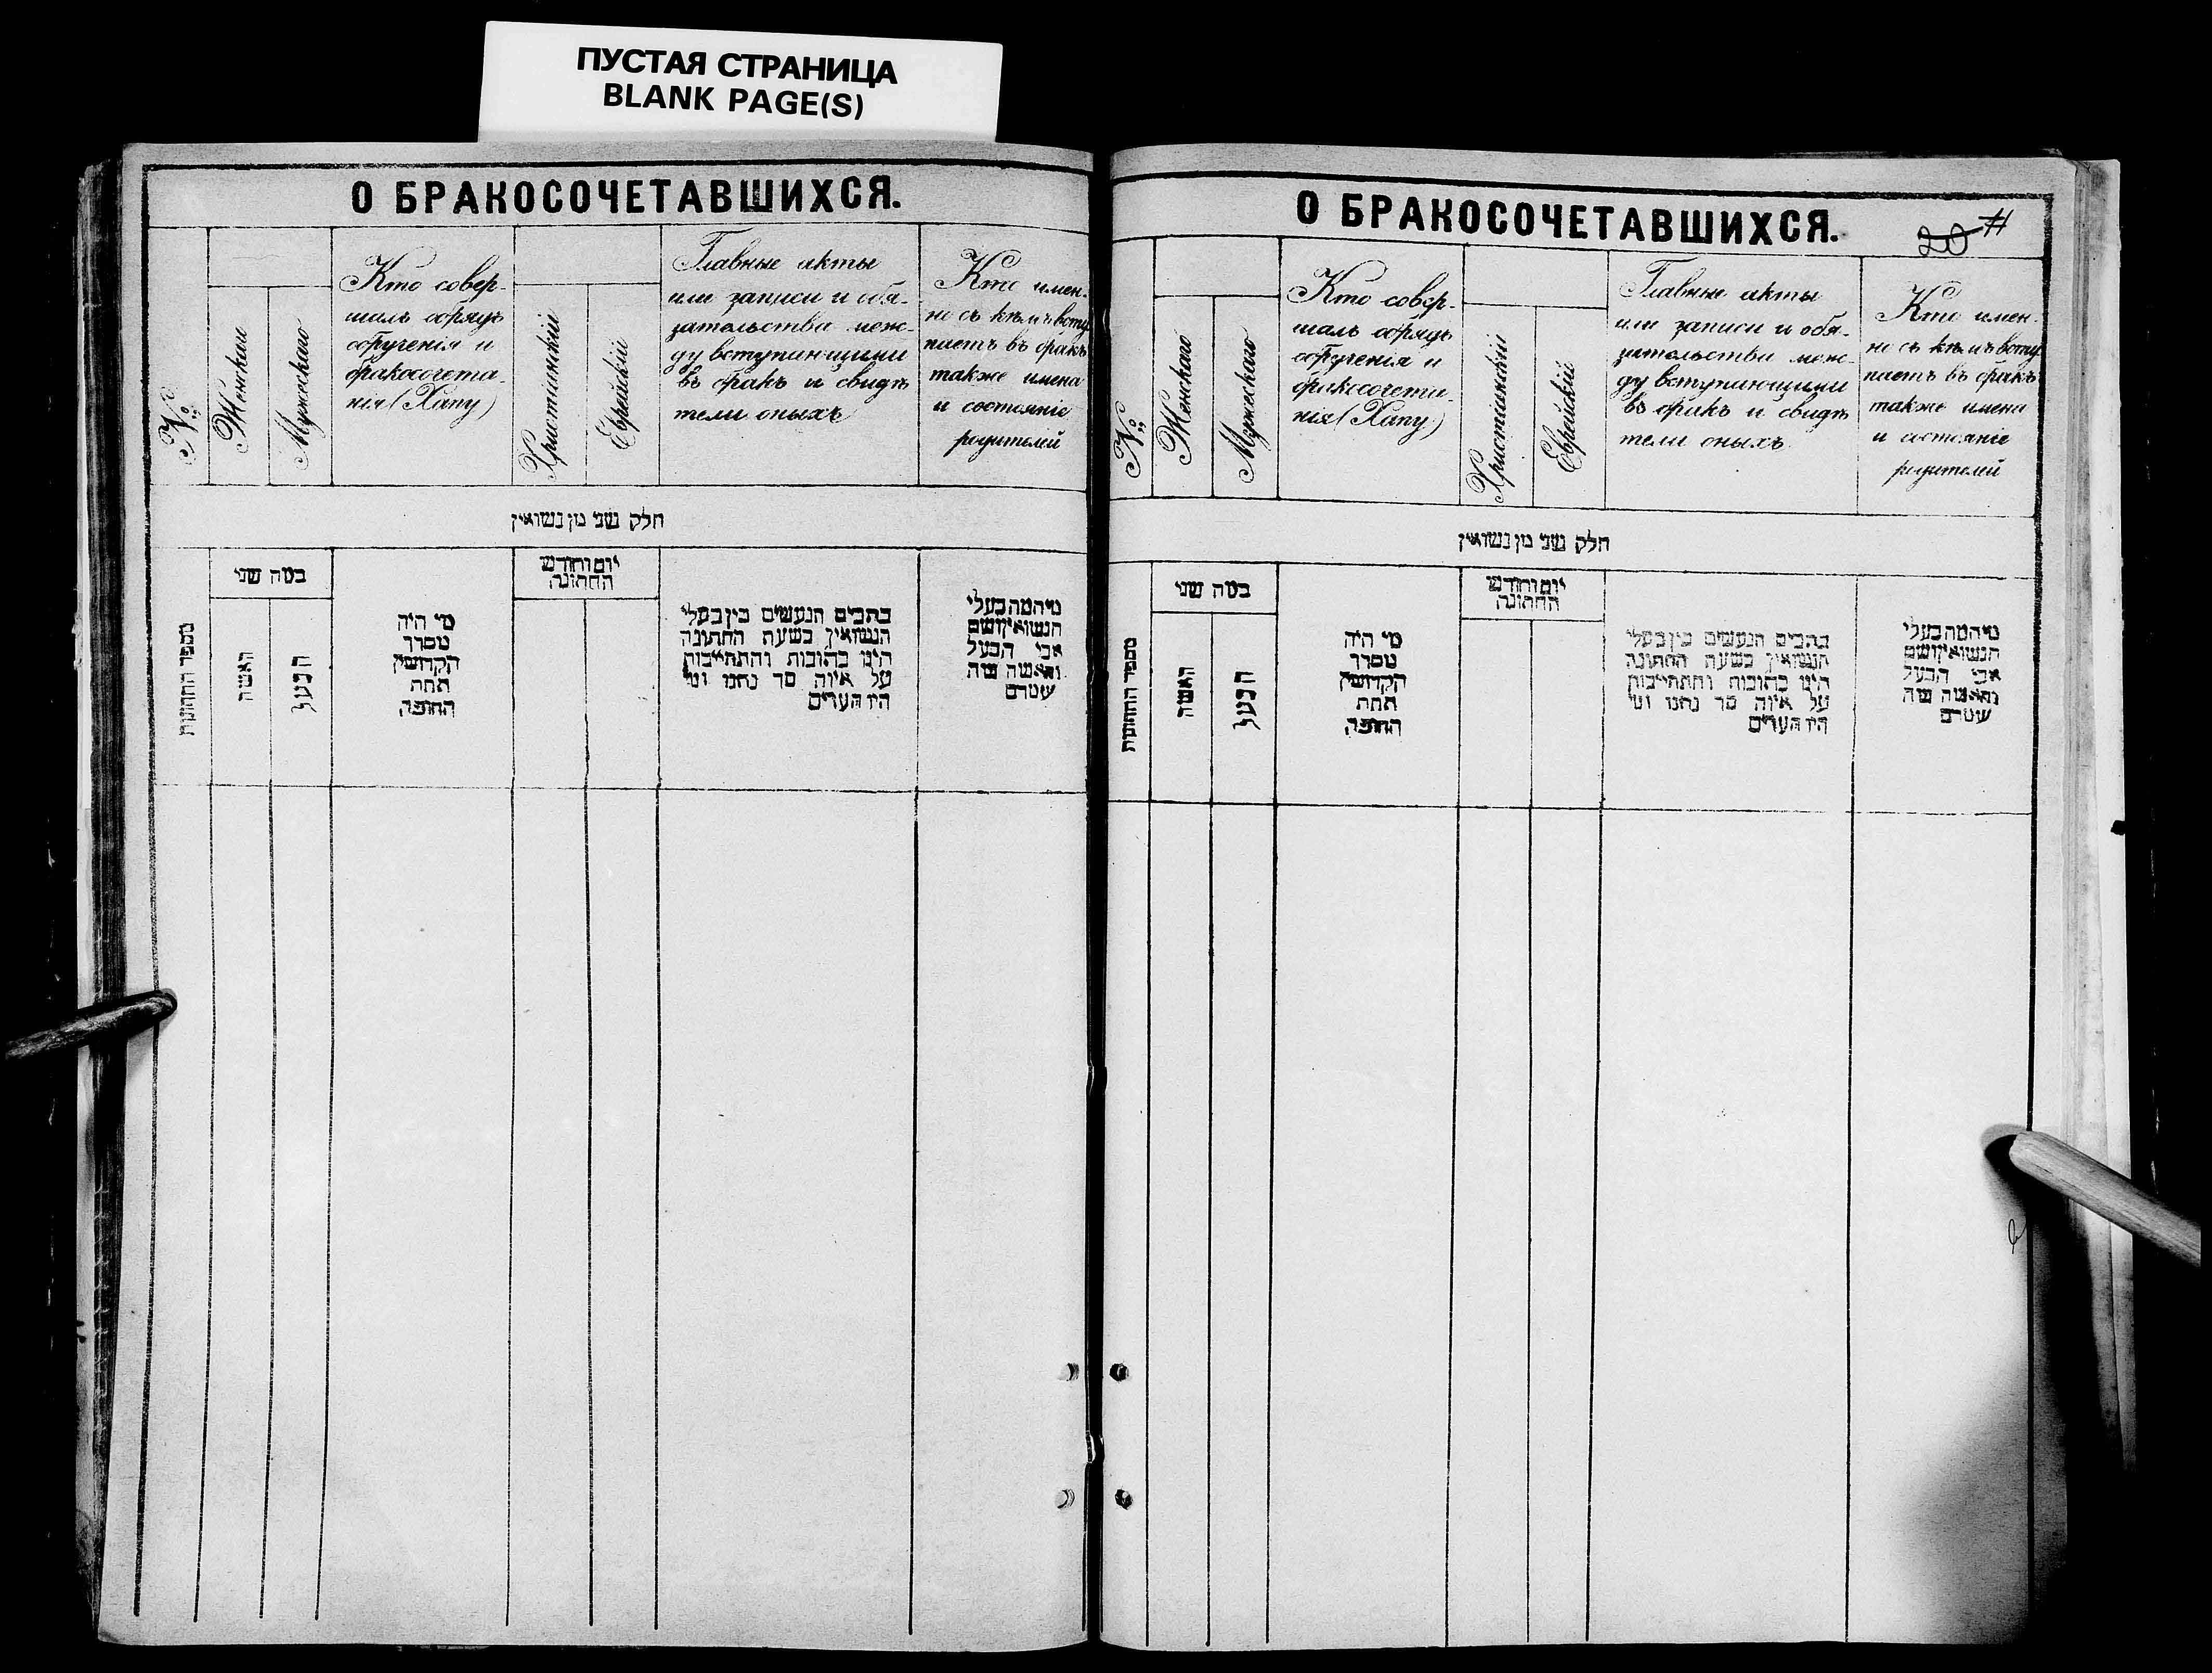 ПУСТАЯ СТРАНИЦА
BLANK PAGE(S)
О БРАКОСОЧЕТАВШИХСЯ.
№
Женскаго
Мужескаго
Кто совер-
шалъ обрядъ
обрученія и
бракосочета-
нія (Хапу)
Христіанскій
Еврейскій
Главные акты
или записи и обя-
зательства меж-
ду вступающими
въ бракъ и свидѣ
тели оныхъ
Кто имен-
но съ кѣмъ всту
паетъ въ бракъ
также имена
и состояніе
родителей
חלק שני מן נשואין
מספר החתונות
במה שני
האשה
הבעל
מי היה
מסדר
הקדושין
תחת
החופה
יום וחודש
החתונה
כתבים הנעשים בין בעלי
הנשואין בשעת החתונה
הינו כתובות והתחייבות
על איזה סך נתנו ומי
היו העדים
מי המה בעלי
הנשואין ושם
אבי הבעל
והאשה מה
О БРАКОСОЧЕТАВШИХСЯ.
20
№
Женскаго
Мужескаго
Кто совер-
шалъ обрядъ
обрученія и
бракосочета-
нія (Хапу)
Христіанскій
Еврейскій
Главные акты
или записи и обя-
зательства меж-
ду вступающими
въ бракъ и свидѣ
тели оныхъ
Кто имен-
но съ кѣмъ всту
паетъ въ бракъ
также имена
и состояніе
родителей
חלק שני מן נשואין
מספר החתונות
במה שני
האשה
הבעל
מי היה
מסדר
הקדושין
תחת
החופה
יום וחודש
החתונה
כתבים הנעשים בין בעלי
הנשואין בשעת החתונה
הינו כתובות והתחייבות
על איזה סך נתנו ומי
היו העדים
מי המה בעלי
הנשואין ושם
אבי הבעל
והאשה מה